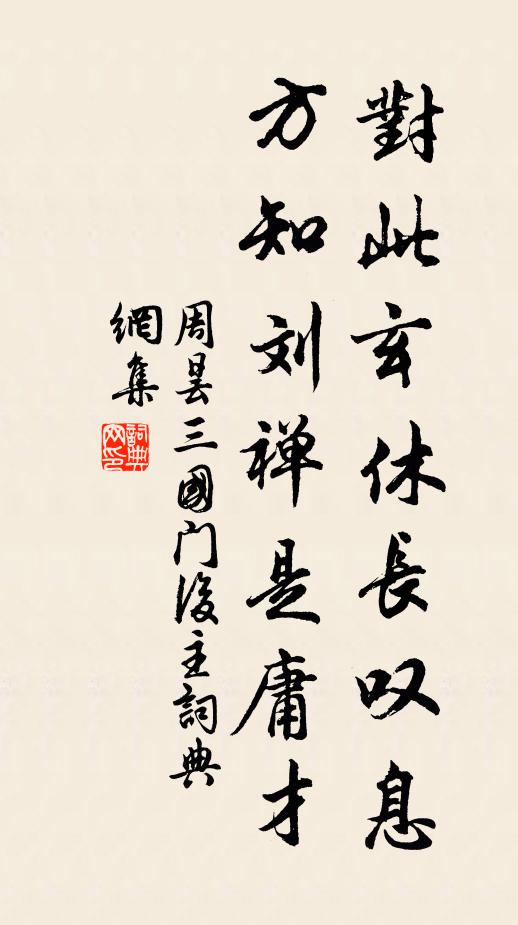 對此玄休長叹息
方知刘禅是庸才
周昙三國門後主詞典
網集
詞典網印